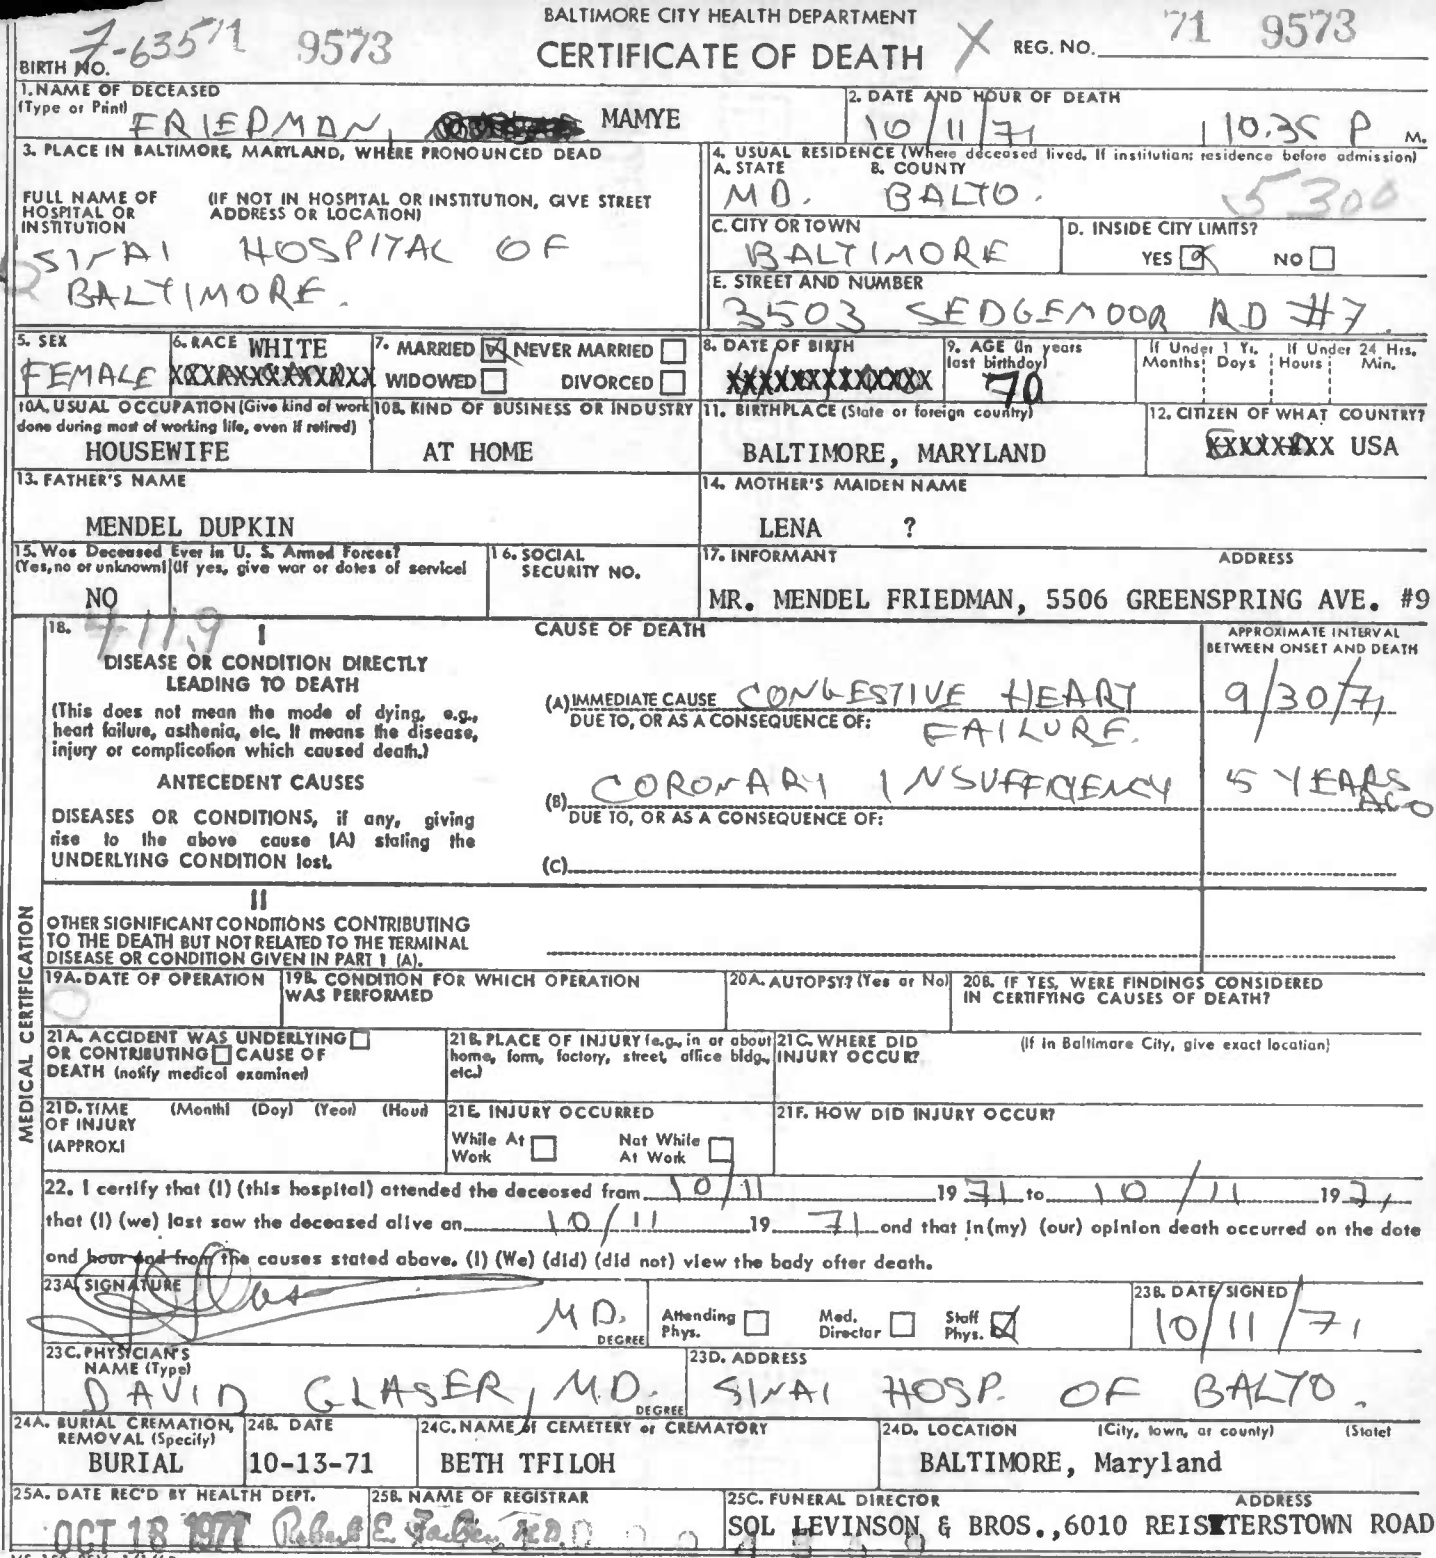 BALTIMORE CITY HEALTH DEPARTMENT
CERTIFICATE OF DEATH X
REG. NO. 71 9573
BIRTH NO. 7-63571 9573
1. NAME OF DECEASED
(Type or Print)
FRIEDMAN, MAMYE
2. DATE AND HOUR OF DEATH
10/11/71 10.35 P M.
3. PLACE IN BALTIMORE, MARYLAND, WHERE PRONOUNCED DEAD
FULL NAME OF HOSPITAL OR INSTITUTION
(IF NOT IN HOSPITAL OR INSTITUTION, GIVE STREET ADDRESS OR LOCATION)
SINAI HOSPITAL OF
BALTIMORE.
4. USUAL RESIDENCE (Where deceased lived. If institution: residence before admission)
A. STATE B. COUNTY
MD. BALTO. 5300
C. CITY OR TOWN
BALTIMORE
D. INSIDE CITY LIMITS?
YES NO
E. STREET AND NUMBER
3503 SEDGEMOOR RD #7
5. SEX
FEMALE
6. RACE WHITE
7. MARRIED NEVER MARRIED
WIDOWED DIVORCED
8. DATE OF BIRTH
XXXXXXXXXXXXX
9. AGE (In years last birthday)
70
If Under 1 Yr. If Under 24 Hrs.
Months Days Hours Min.
10A. USUAL OCCUPATION (Give kind of work done during most of working life, even if retired)
HOUSEWIFE
10B. KIND OF BUSINESS OR INDUSTRY
AT HOME
11. BIRTHPLACE (State or foreign country)
BALTIMORE, MARYLAND
12. CITIZEN OF WHAT COUNTRY?
XXXXXXXX USA
13. FATHER'S NAME
MENDEL DUPKIN
14. MOTHER'S MAIDEN NAME
LENA ?
15. Was Deceased Ever in U. S. Armed Forces?
(Yes, no or unknown) (If yes, give war or dates of service)
NO
16. SOCIAL SECURITY NO.
17. INFORMANT ADDRESS
MR. MENDEL FRIEDMAN, 5506 GREENSPRING AVE. #9
MEDICAL CERTIFICATION
18. 411.9 I
CAUSE OF DEATH
APPROXIMATE INTERVAL BETWEEN ONSET AND DEATH
DISEASE OR CONDITION DIRECTLY
LEADING TO DEATH
(This does not mean the mode of dying, e.g.,
heart failure, asthenia, etc. It means the disease,
injury or complication which caused death.)
(A) IMMEDIATE CAUSE CONGESTIVE HEART 9/30/71
DUE TO, OR AS A CONSEQUENCE OF: FAILURE.
ANTECEDENT CAUSES
DISEASES OR CONDITIONS, if any, giving
rise to the above cause (A) stating the
UNDERLYING CONDITION last.
(B) CORONARY INSUFFICIENCY 5 YEARS AGO
DUE TO, OR AS A CONSEQUENCE OF:
(C)
II
OTHER SIGNIFICANT CONDITIONS CONTRIBUTING
TO THE DEATH BUT NOT RELATED TO THE TERMINAL
DISEASE OR CONDITION GIVEN IN PART 1 (A).
19A. DATE OF OPERATION
0
19B. CONDITION FOR WHICH OPERATION WAS PERFORMED
20A. AUTOPSY? (Yes or No)
20B. IF YES, WERE FINDINGS CONSIDERED IN CERTIFYING CAUSES OF DEATH?
21A. ACCIDENT WAS UNDERLYING
OR CONTRIBUTING CAUSE OF
DEATH (notify medical examiner)
21B. PLACE OF INJURY (e.g., in or about home, farm, factory, street, office bldg., etc.)
21C. WHERE DID INJURY OCCUR? (If in Baltimore City, give exact location)
21D. TIME OF INJURY (APPROX.) (Month) (Day) (Year) (Hour)
21E. INJURY OCCURRED
While At Work Not While At Work
21F. HOW DID INJURY OCCUR?
22. I certify that (I) (this hospital) attended the deceased from 10/11 19 71 to 10/11 19 71
that (I) (we) last saw the deceased alive on 10/11 19 71 and that in (my) (our) opinion death occurred on the date
and hour and from the causes stated above. (I) (We) (did) (did not) view the body after death.
23A. SIGNATURE
M.D. DEGREE
Attending Phys. Med. Director Staff Phys.
23B. DATE SIGNED
10/11/71
23C. PHYSICIAN'S NAME (Type)
DAVID GLASER, M.D. DEGREE
23D. ADDRESS
SINAI HOSP. OF BALTO.
24A. BURIAL CREMATION, REMOVAL (Specify)
BURIAL
24B. DATE
10-13-71
24C. NAME of CEMETERY or CREMATORY
BETH TFILOH
24D. LOCATION (City, town, or county) (State)
BALTIMORE, Maryland
25A. DATE REC'D BY HEALTH DEPT.
OCT 18 1971
25B. NAME OF REGISTRAR
Robert E. Farber, M.D.
25C. FUNERAL DIRECTOR ADDRESS
SOL LEVINSON & BROS., 6010 REISTERSTOWN ROAD